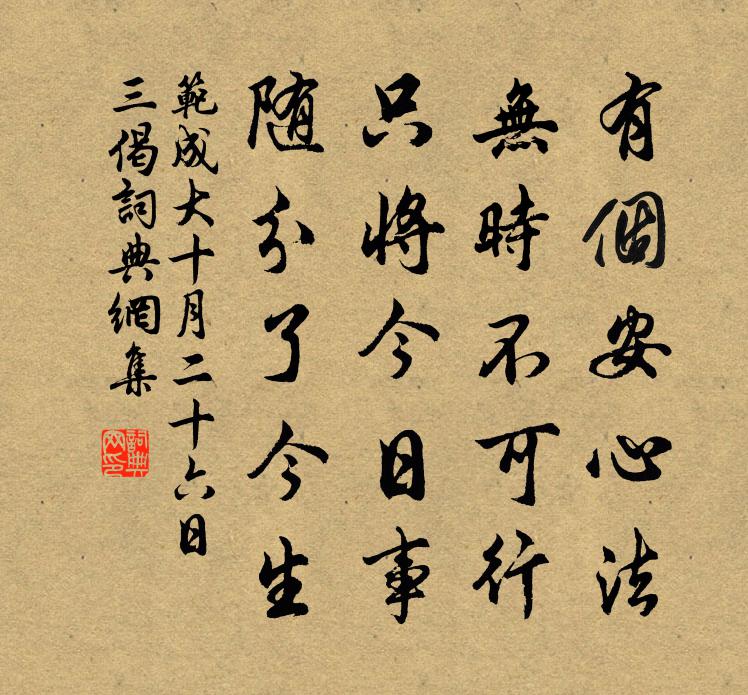 有個安心法
無時不可行
只將今日事
随分了今生
範成大十月二十六日
三偈詞典網集
詞典網印